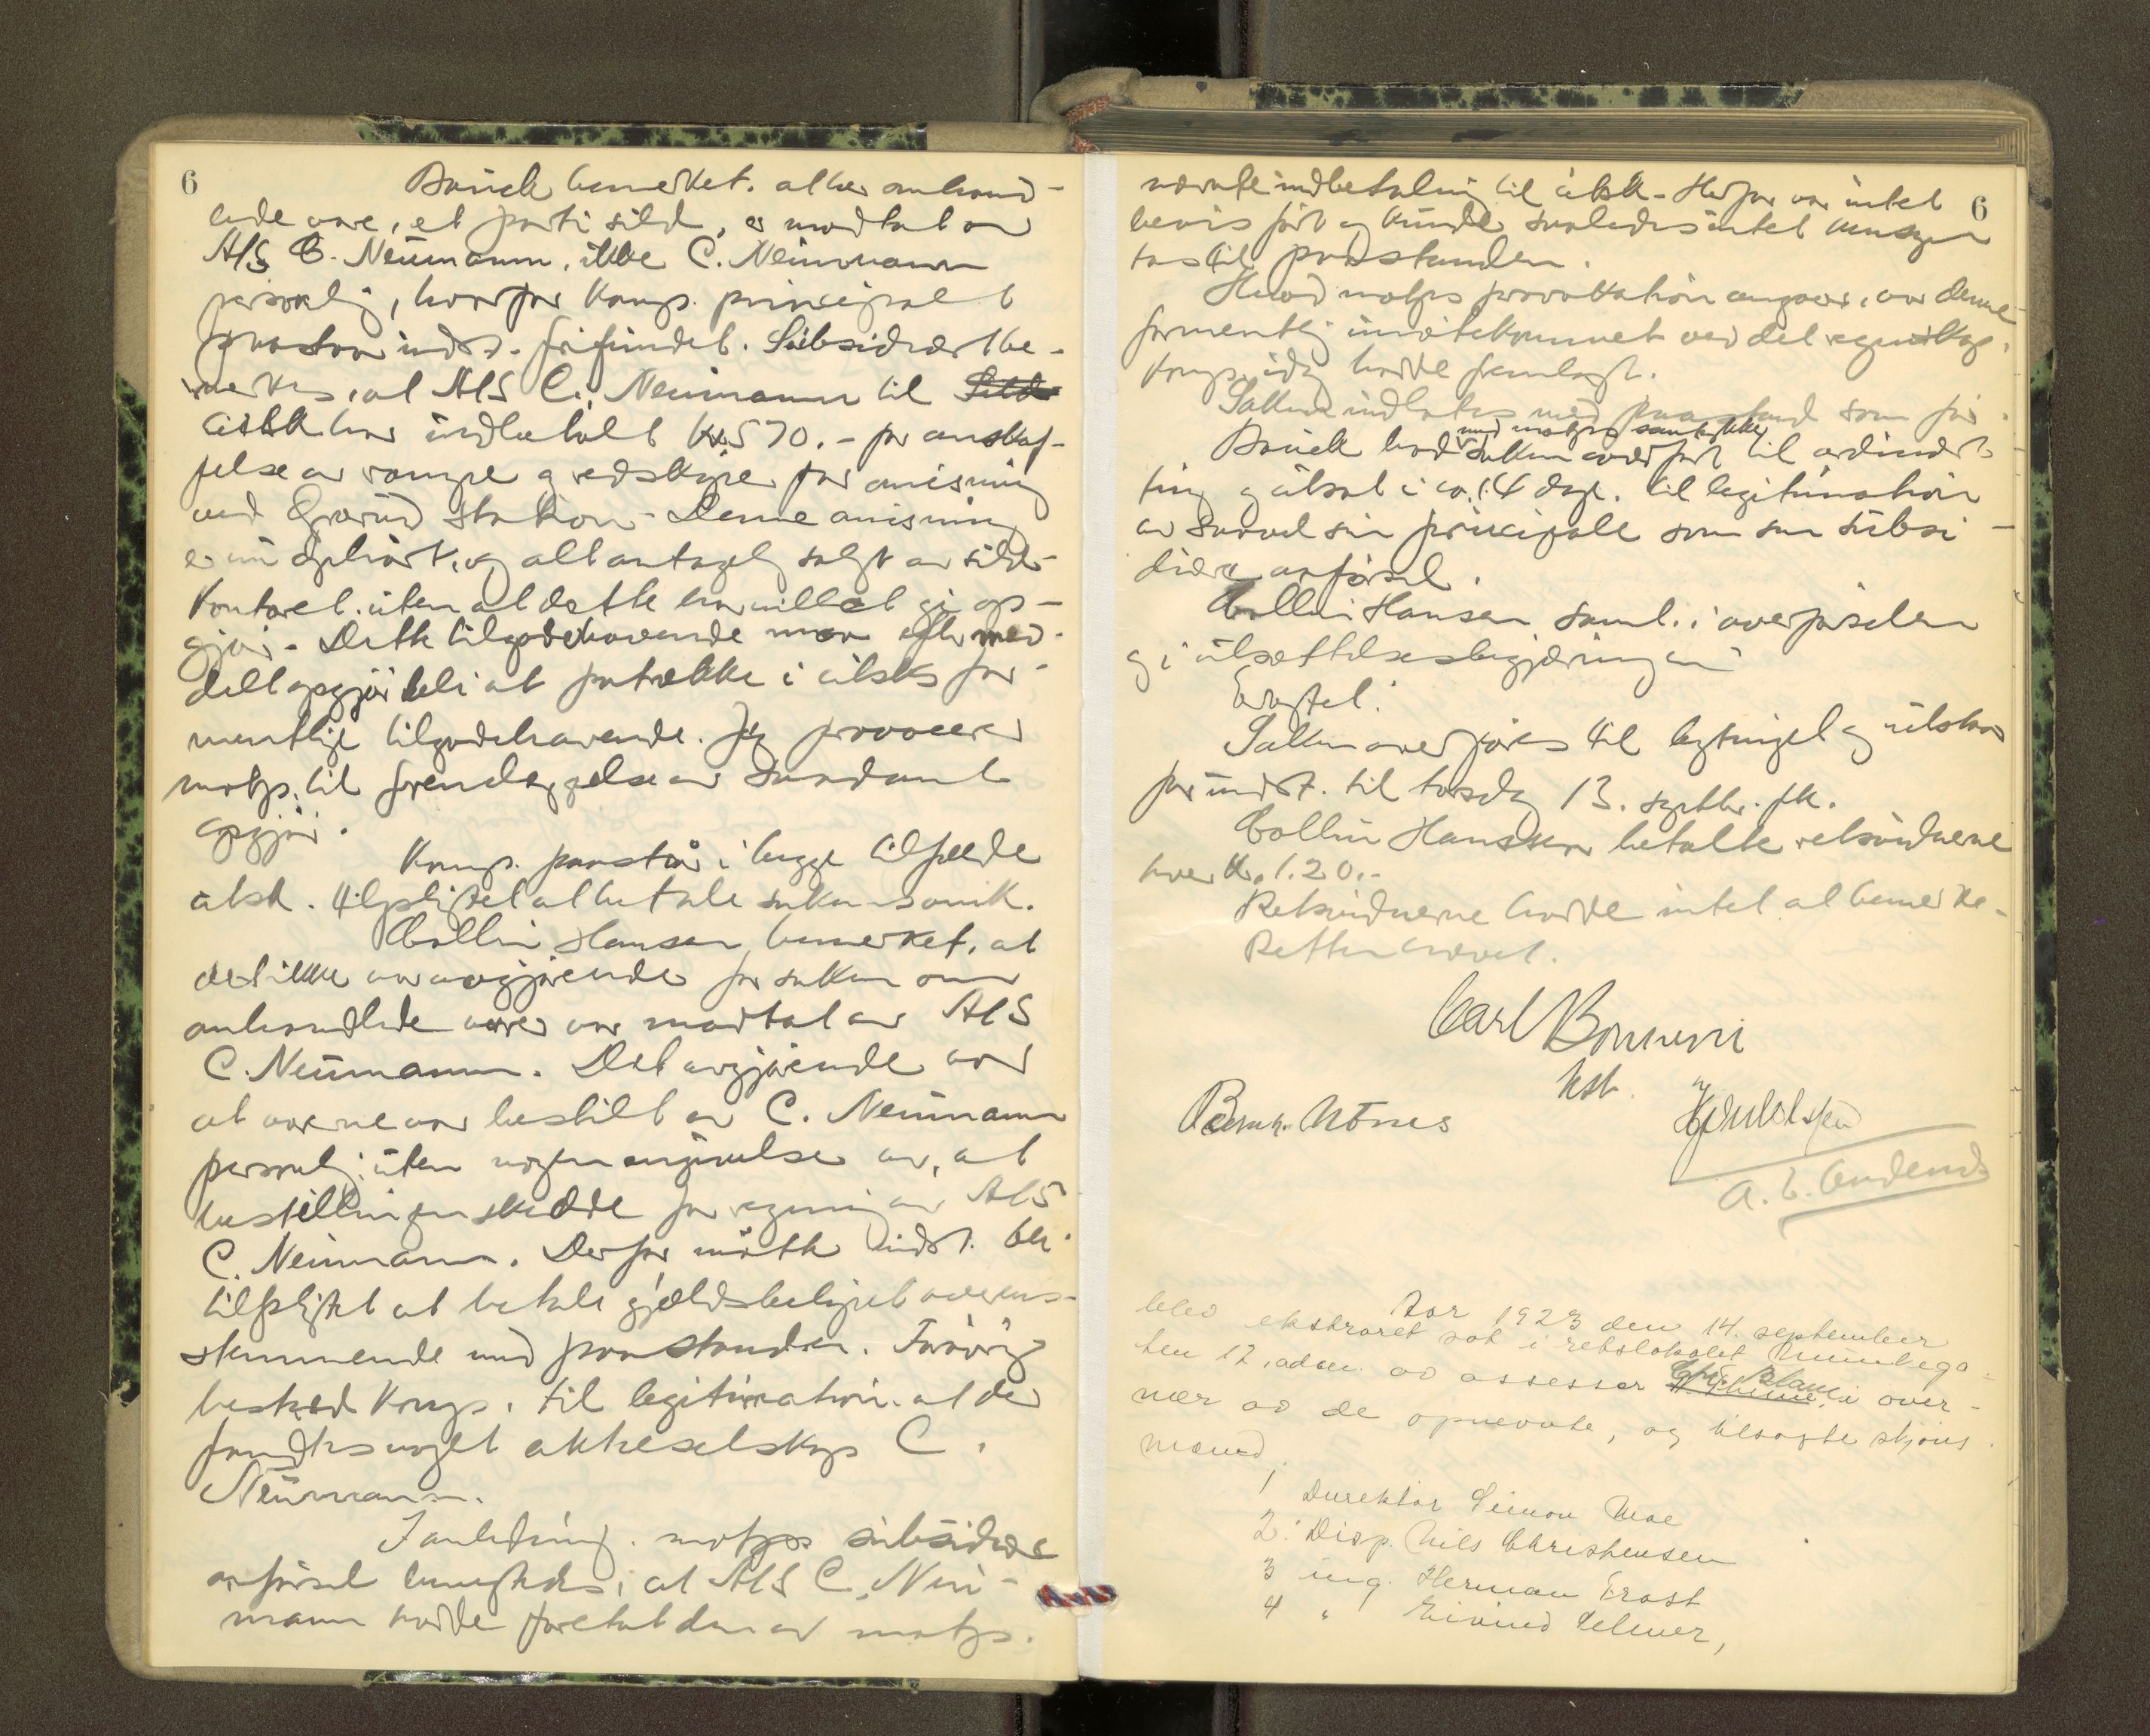 6
bemerket, at her omhand-
lede vare, et parti sild, er modtat av
A/S C. Neumann, ikke C. Neumann
personlig, hvorfor komp. principalt
paastaar indst. frifundet. Subsidiært be-
merkes, at A/S C. Neumann til Sild
citsk. har indbetalt kr. 570.- for anskaf-
felse av rampe og redskaper for anisning
ved station. Denne anisning
er nu ophört, og alt antagelig solgt av silde-
kontoret, uten at dette har villet gi op-
gjör. Dette tilgodehavende maa efter med-
delt opgjör bli at fratrække i citsks for-
mentlige tilgodehavende. Jeg provocerer
motp. til fremlæggelse av saadant
opgjör.
Komp. paastår i begge tilfælde
citsk. tilpligtet at betale saksomk.
Collin Hansen bemerket, at
det ikke var avgjörende for saken om
omhandlede varer var mottat av A/S
C. Neumann. Det avgjörende var
at varene var bestilt av C. Neumann
personlig, uten nogen angivelse av, at
bestillingen skedde for regning av A/S
C. Neumann. Derfor måtte indst. bli
tilpligtet at betale gjældsbelöpet overens-
stemmende med paastanden. Forövrig
besked komp. til legitimation, at der
fandtes noget aktieselskap C.
Neumann.
I anledning motps subsidiære
anförsel benegtedes, at A/S C. Neu-
mann hadde foretat den av motp.
6
nævnte indbetaling til citsk. Herfor var intet
bevis fört og kunde saaledes intet hensyn
tas til paastanden.
Hvad motps provokation angaar, var denne
formentlig imötekommet ved det regnskap,
komp. idag hadde fremlagt.
Saken indlates med paastand som för.
med motps samtykke
bad saken overfört til ordinært
ting og utsat i ca. 14 dage til legitimation
av saavel sin principale som sin subsi-
diære anförsel.
Collin Hansen saml. i overförselen
og i utsættelsesbegjæringen
Eragtet:
Saken overföres til bytinget og utstaar
för indst. til torsdag 13. septbr. fk.
Collin Hansen betalte retsvidnerne
hver kr. 1.20.-
Retsvidnerne hadde intet at bemerke.
Retten hævet.
Carl
kst.
Bernh.
Aar 1923 den 14. september
blev ekstraret sat i retslokalet Munkega-
ten 12, adm. av assessor over-
vær av de opnevnte, og tilsagte skjöns
mænd
1 Direktör Simon Moe
2. Disp. Nils Christensen
3 ing. Herman Frost
4 " Eivind Selmer,